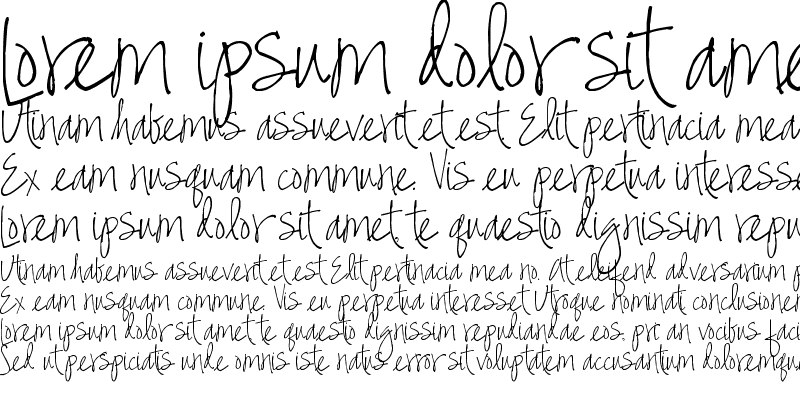 Lorem ipsum dolor sit ame
Utinam habemus assueverit et est Elit pertinacia mea
Ex eam nusquam commune. Vis eu perpetua interesse
Lorem ipsum dolor sit amet te quaestio dignissim repu
Utinam habemus assueverit et est Elit pertinacia mea no. At eleifend adversarium p
Ex eam nusquam commune. Vis eu perpetua interesset Utroque nominati conclusionem
Lorem ipsum dolor sit amet te quaestio dignissim repudiandae eos, pri an vocibus faci
Sed ut perspiciatis unde omnis iste natus error sit voluptatem accusantium doloremqu